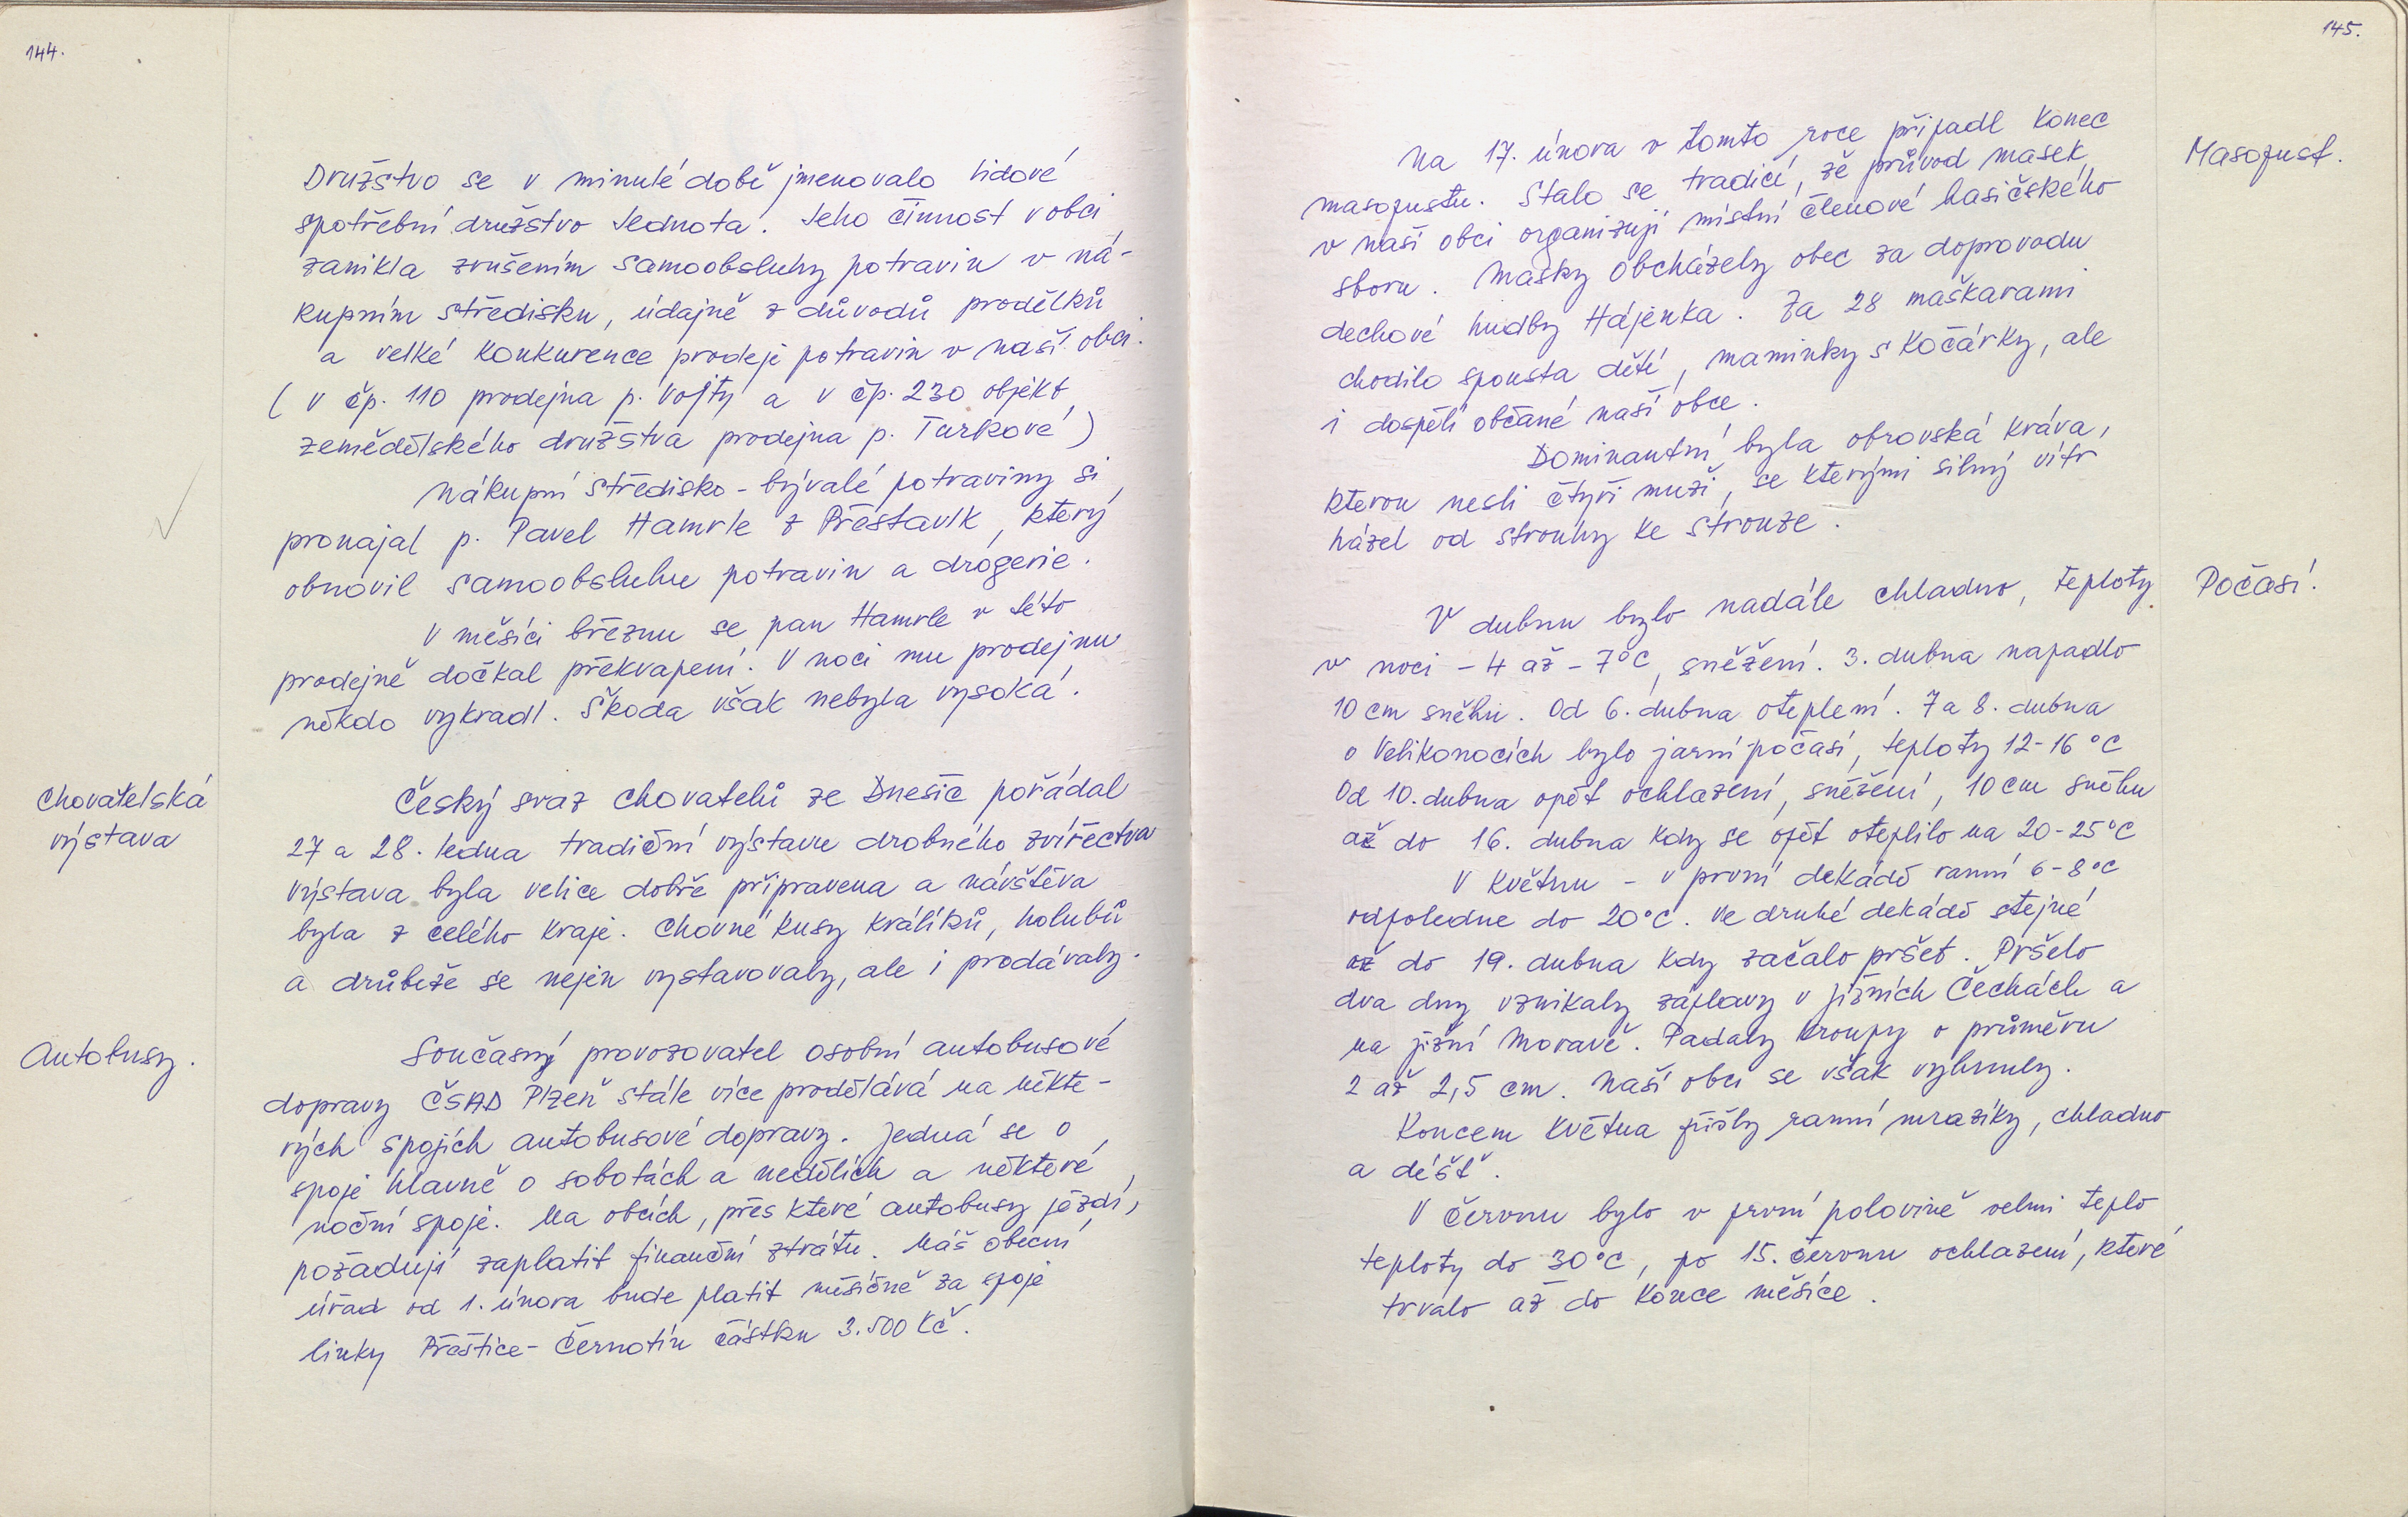 144.
Družstvo se v minulé době jmenovalo Lidové
spotřební družstvo Jednota. Jeho činnost v obci
zanikla zrušením samoobsluhy potravin v ná-
kupním středisku, údajně z důvodů prodělků
a velké konkurence prodeje potravin v naší obci.
( v čp. 110 prodejna p. Vojty a v čp. 230 objekt
zemědělského družstva prodejna p. Turkové )
Nákupní středisko - bývalé potraviny si
pronajal p. Pavel Hamrle z Přestavlk, který
obnovil samoobsluhu potravin a drogerie.
V měsíci březnu se pan Hamrle v této
prodejně dočkal překvapení. V noci mu prodejnu
někdo vykradl. Škoda však nebyla vysoká.
Chovatelská
výstava
Český svaz chovatelů ze Dnešic pořádal
27 a 28. ledna tradiční výstavu drobného zvířectva
výstava byla velice dobře připravena a návštěva
byla z celého kraje. Chovné kusy králíků, holubů
a drůbeže se nejen vystavovaly, ale i prodávaly.
Autobusy.
Současný provozovatel osobní autobusové
dopravy ČSAD Plzeň stále více prodělává na někte-
rých spojích autobusové dopravy. Jedná se o
spoje hlavně o sobotách a nedělích a některé
noční spoje. Na obcích, přes které autobusy jezdí,
požadují zaplatit finanční ztrátu. Náš obecní
úřad od 1. února bude platit měsíčně za spoje
linky Přeštice - Černotín částku 3.500 Kč.
145.
Masopust.
Na 17. února v tomto roce připadl konec
masopustu. Stalo se tradicí, že průvod masek
v naší obci organizují místní členové hasičského
sboru. Masky obcházely obec za doprovodu
dechové hudby Hájenka. Za 28 maškarami
chodilo spousta dětí, maminky s kočárky, ale
i dospělí občané naší obce.
Dominantní byla obrovská kráva,
kterou nesli čtyři muži, se kterými silný vítr
házel od strouhy ke strouze.
Počasí.
V dubnu bylo nadále chladno, teploty
v noci - 4 až - 7°C, sněžení. 3. dubna napadlo
10 cm sněhu. Od 6. dubna oteplení. 7 a 8. dubna
o Velikonocích bylo jarní počasí, teploty 12-16 °C
Od 10. dubna opět ochlazení, sněžení, 10 cm sněhu
až do 16. dubna kdy se opět oteplilo na 20-25°C
V květnu - v první dekádě ranní 6-8°C
odpoledne do 20°C. Ve druhé dekádě stejné
až do 19. dubna kdy začalo pršet. Pršelo
dva dny vznikaly záplavy v jižních Čechách a
na jižní Moravě. Padaly kroupy o průměru
2 až 2,5 cm. Naší obci se však vyhnuly.
Koncem května přišly ranní mrazíky, chladno
a déšť.
V červnu bylo v první polovině velmi teplo
teploty do 30°C, po 15. červnu ochlazení, které
trvalo až do konce měsíce.